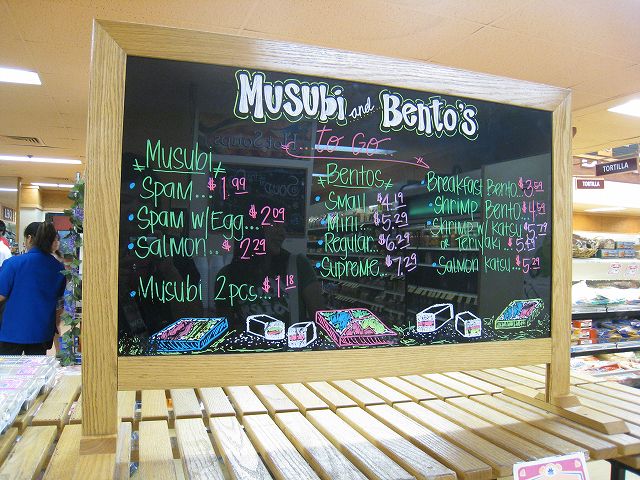 Musubi and Bento's
...to Go...
Musubi
Spam.. $1.99
Spam w/Egg.. $2.09
Salmon... $2.29
Musubi 2pcs... $1.18
Bentos
Small.. $4.19
Mini... $5.29
Regular.. $6.29
Supreme.. $7.29
Breakfast Bento. $3.59
Shrimp Bento.. $4.59
Shrimp w/ Katsu
or Teriyaki..
Salmon Katsu... $5.29
TORTILLA
TORTILLA